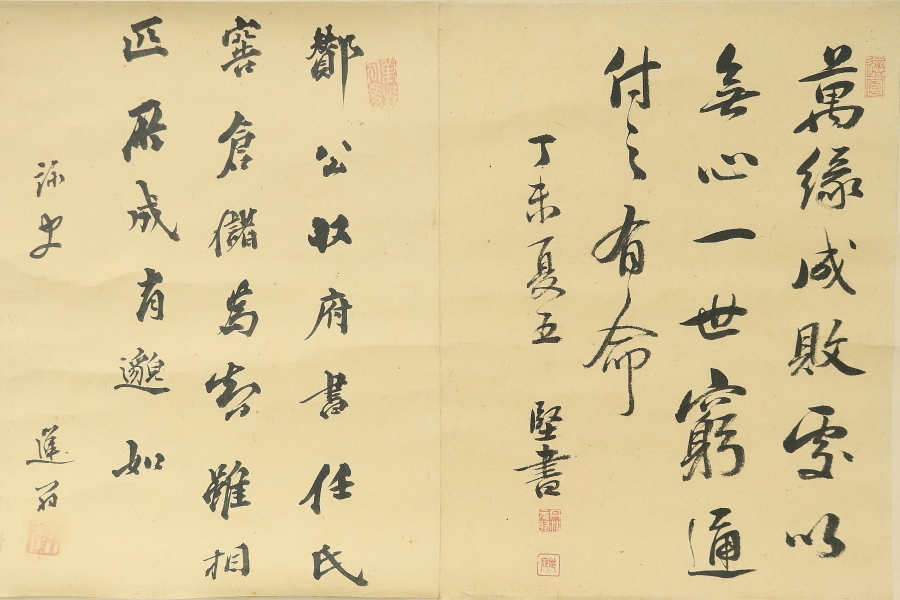 萬緣成敗受以
無心一世窮通
付之有命
丁未夏五 堅書
酇公收府書任氏
窖倉儲為智雖相
匹所成有邈如
詠史 蓮翁